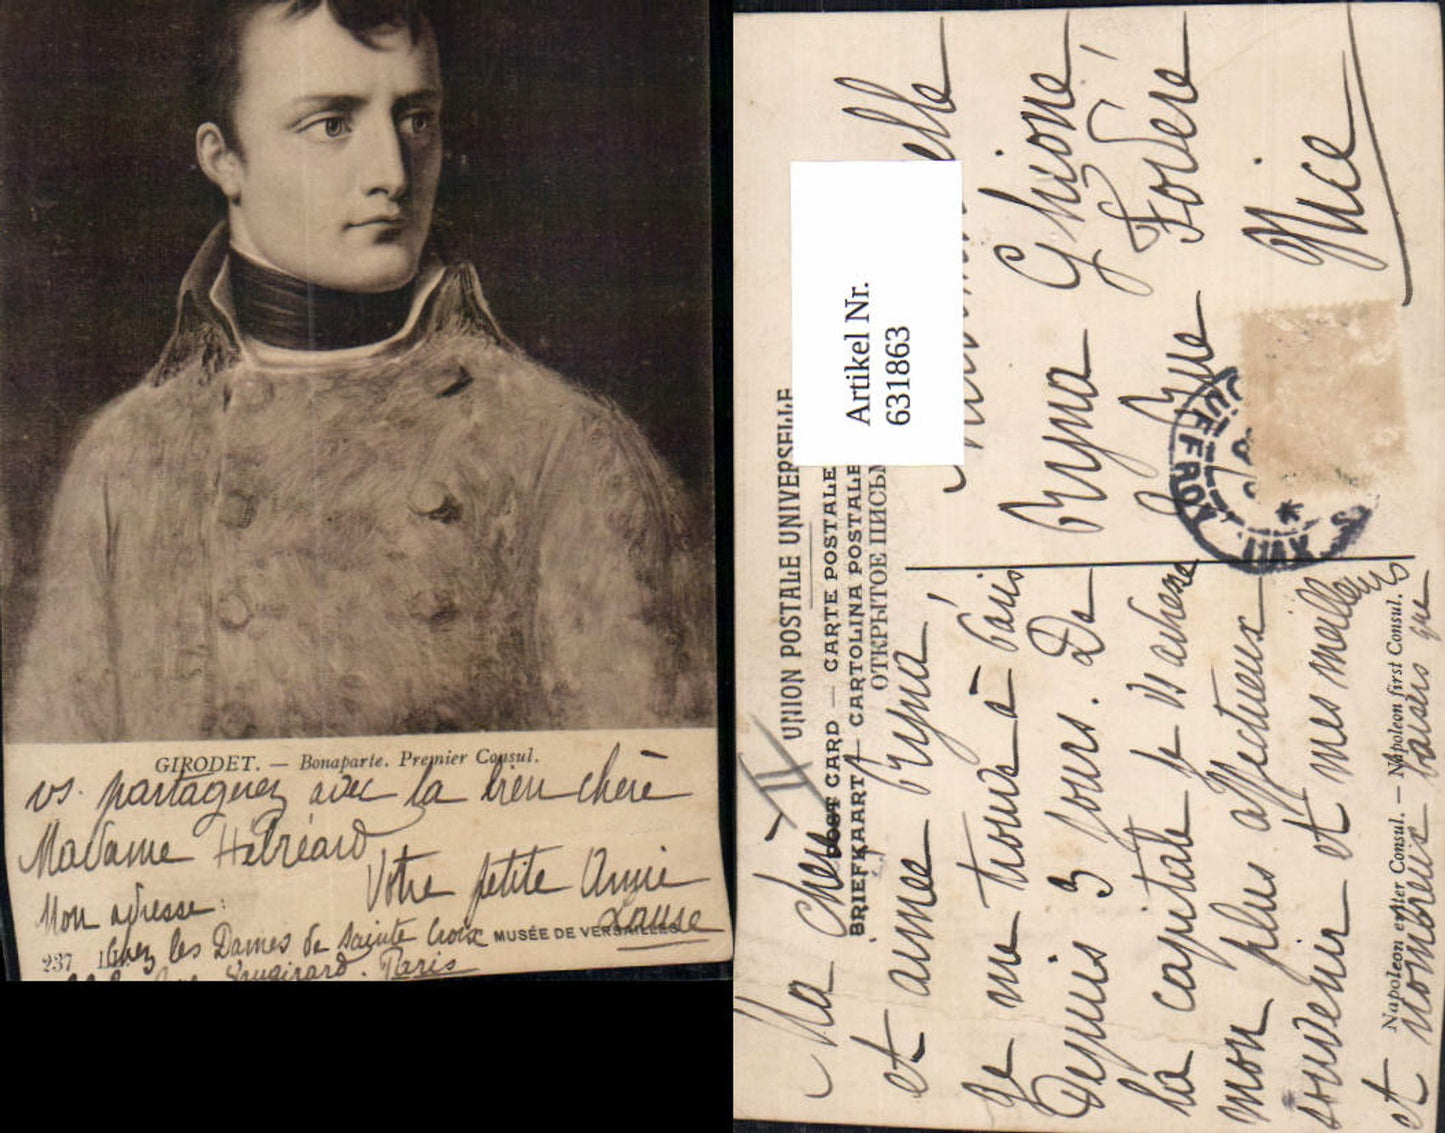 GIRODET. — Bonaparte. Premier Consul.
vs. partagerez avec la bien chère
Madame Hébréard
Votre petite Amie
Louise
Mon adresse:
chez les Dames de Sainte Croix
MUSÉE DE VERSAILLES
237
Vaugirard. Paris
UNION POSTALE UNIVERSELLE
POST CARD — CARTE POSTALE
BRIEFKAART — CARTOLINA POSTALE
ОТКРЫТОЕ ПИСЬМ
Artikel Nr.
631863
elle
Bryna Ghione
Rue Foderé
Nice
Ma chère
et aimée Bryna,
Je me trouve à Paris
depuis 3 jours. De
la capitale je vs adresse
mon plus affectueux
souvenir et mes meilleurs
et nombreux baisers que
Napoleon erster Consul. — Napoleon first Consul.